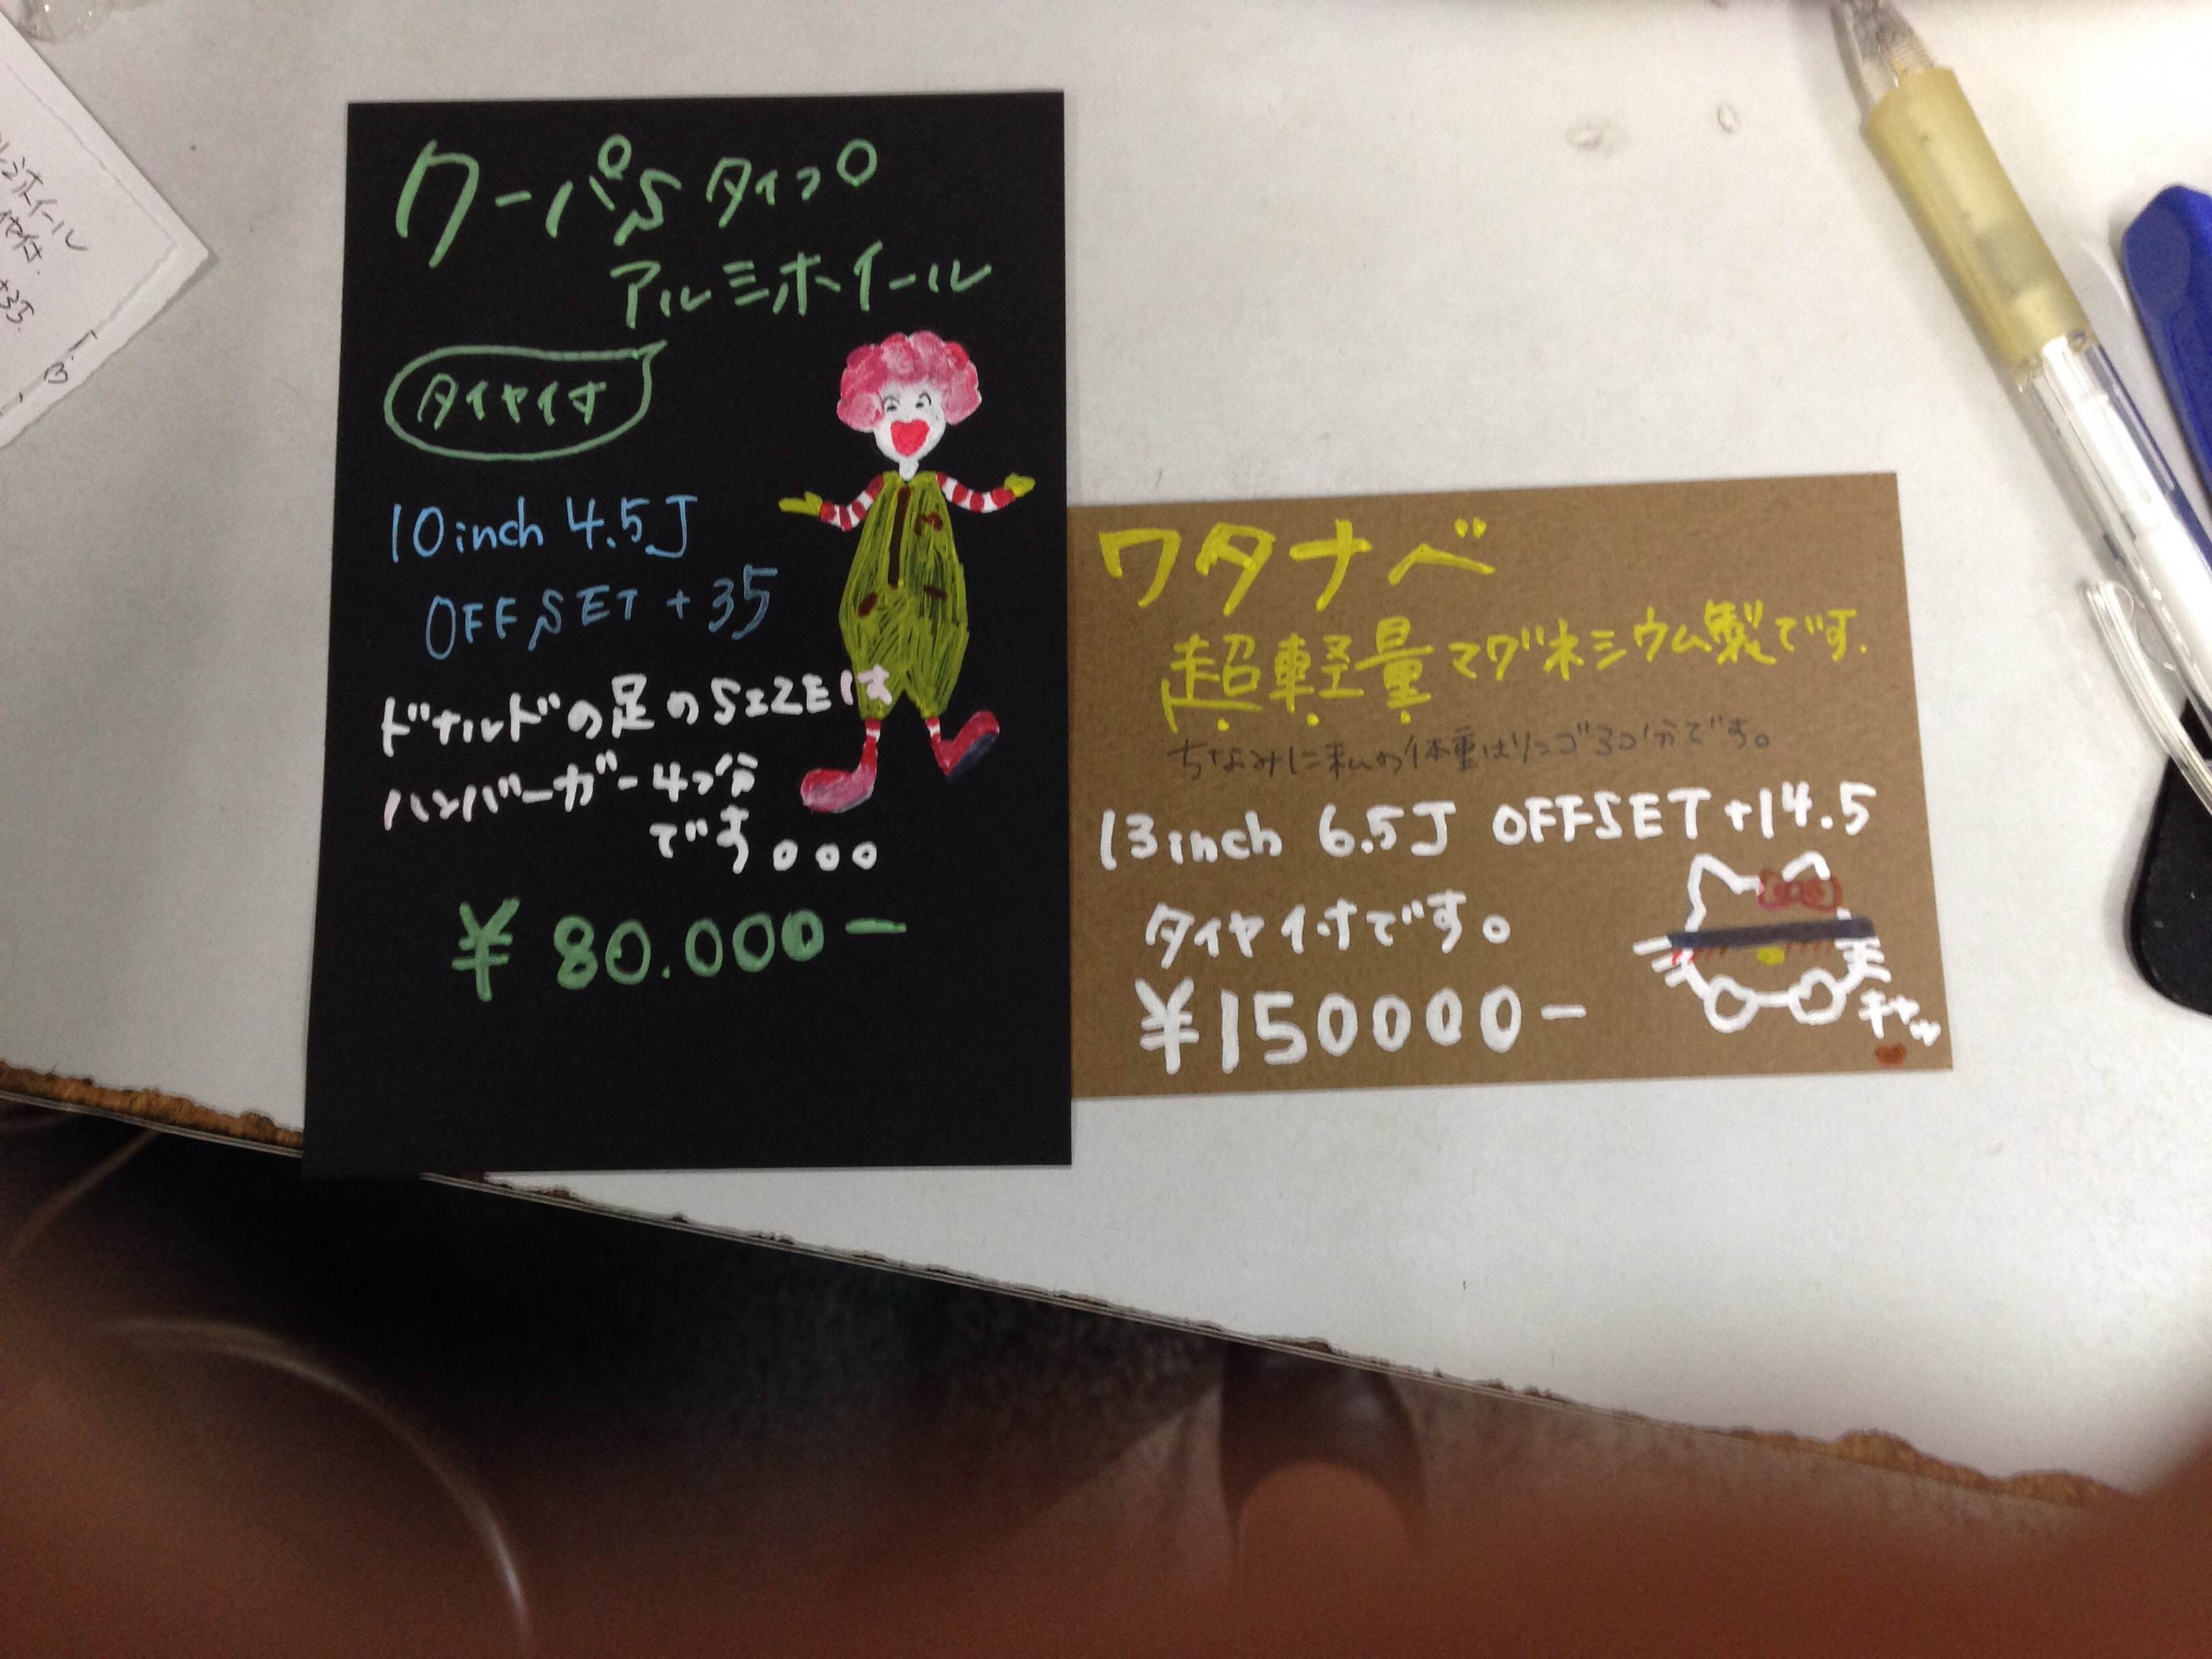 クーパS タイプ
アルミホイール
タイヤ付
10inch 4.5J
OFFSET +35
ドナルドの足のSIZEは
ハンバーガー4つ分
です。。。
¥80.000-
ワタナベ
超軽量マグネシウム製です.
ちなみに私の体重はリンゴ3コ分です。
13inch 6.5J OFFSET+14.5
タイヤ付です。
¥150000-
キャッ
ホイール
+35.